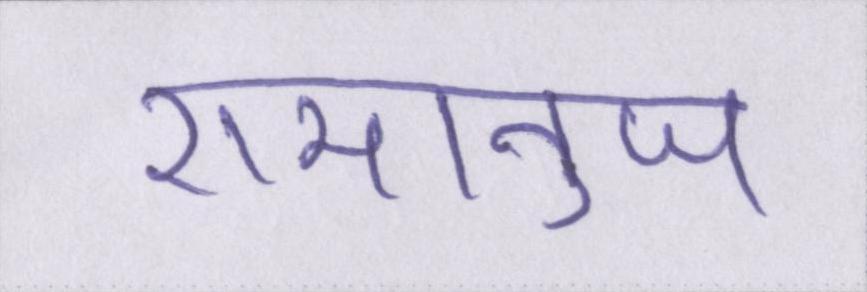 रामानुज